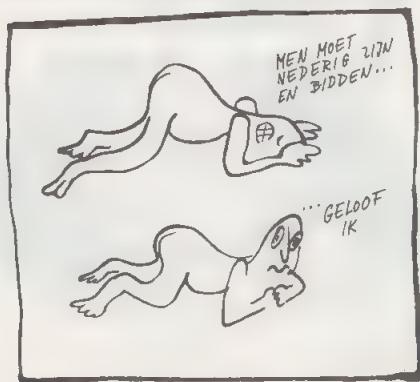 MEN MOET
NEDERIG ZIJN
EN BIDDEN...
...GELOOF
IK